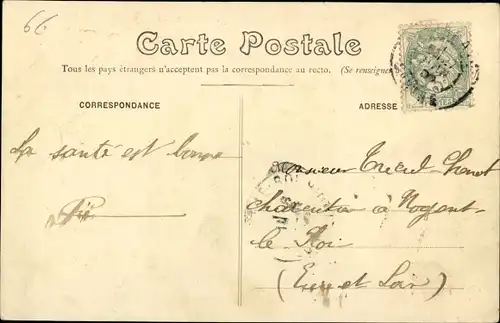 66
Carte Postale
Tous les pays étrangers n'acceptent pas la correspondance au recto. (Se renseigner
CORRESPONDANCE
ADRESSE
La santé est bonne
Monsieur
charcutier à Nogent-
le Roi
(Eure et Loir)